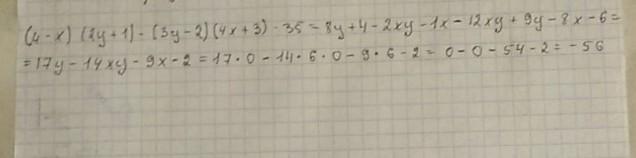 (4-x) (2y+1) - (3y-2) (4x+3) - 35 = 8y+4-2xy-1x-12xy+9y-8x-6=
=17y-14xy-9x-2=17·0-14·6·0-9·6-2=0-0-54-2=-56